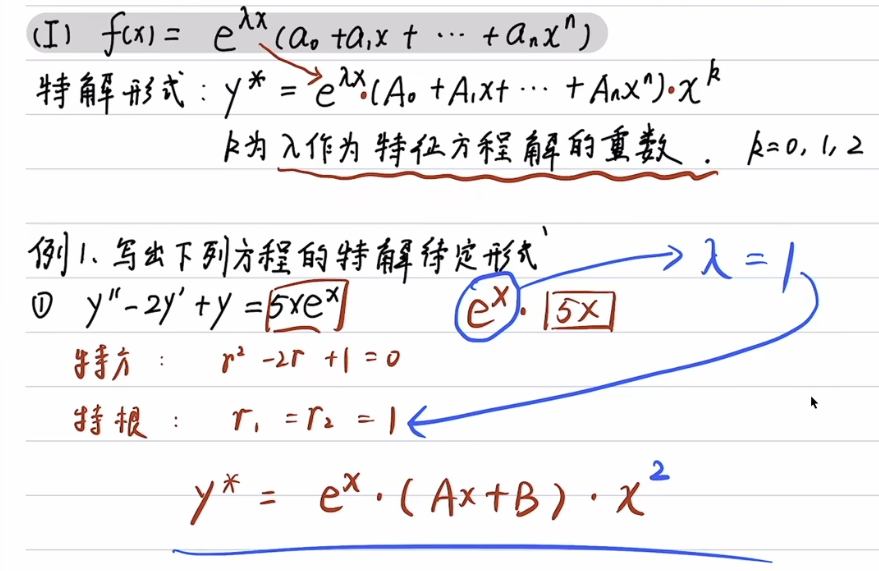 (I) f(x) = e^{λx}(a₀ + a₁x + ⋯ + aₙxⁿ)
特解形式: y* = e^{λx}·(A₀ + A₁x + ⋯ + Aₙxⁿ)·x^k
k为λ作为特征方程解的重数. k=0, 1, 2
例1. 写出下列方程的特解待定形式
① y'' - 2y' + y = 5xe^x e^x · 5x λ = 1
特方: r² - 2r + 1 = 0
特根: r₁ = r₂ = 1
y* = e^x · (Ax+B) · x²